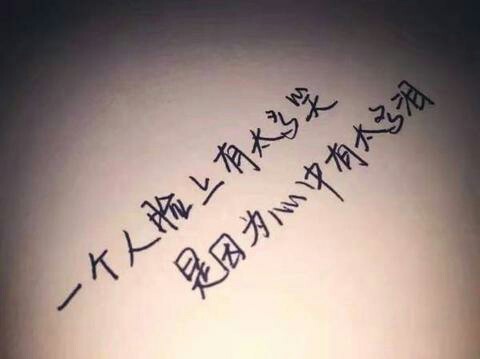 一个人脸上有太多笑
是因为心中有太多泪